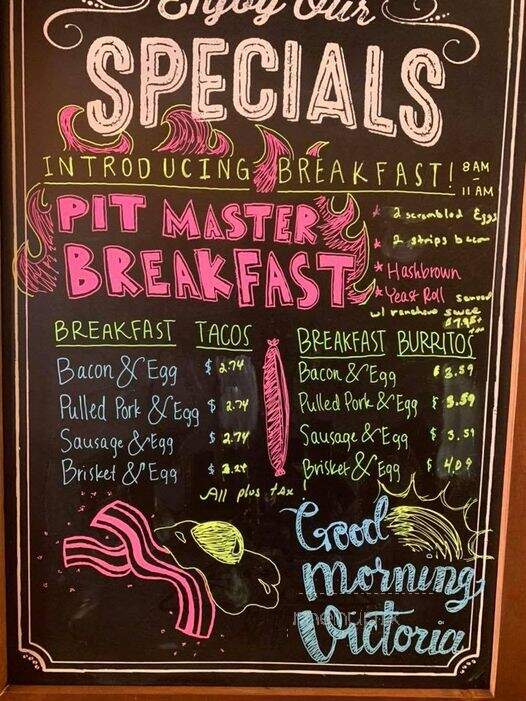 Enjoy Our
SPECIALS
INTRODUCING BREAKFAST! 8AM - 11AM
PIT MASTER
BREAKFAST
* 2 scrambled Eggs
* 2 strips bacon
* Hashbrown
* Yeast Roll served
w/ ranchero sauce
BREAKFAST TACOS
Bacon & Egg $ 2.74
Pulled Pork & Egg $ 2.74
Sausage & Egg $ 2.74
Brisket & Egg $
All plus tax
BREAKFAST BURRITOS
Bacon & Egg $ 3.59
Pulled Pork & Egg $ 3.59
Sausage & Egg $ 3.59
Brisket & Egg $ 4.09
Good
Morning
Victoria